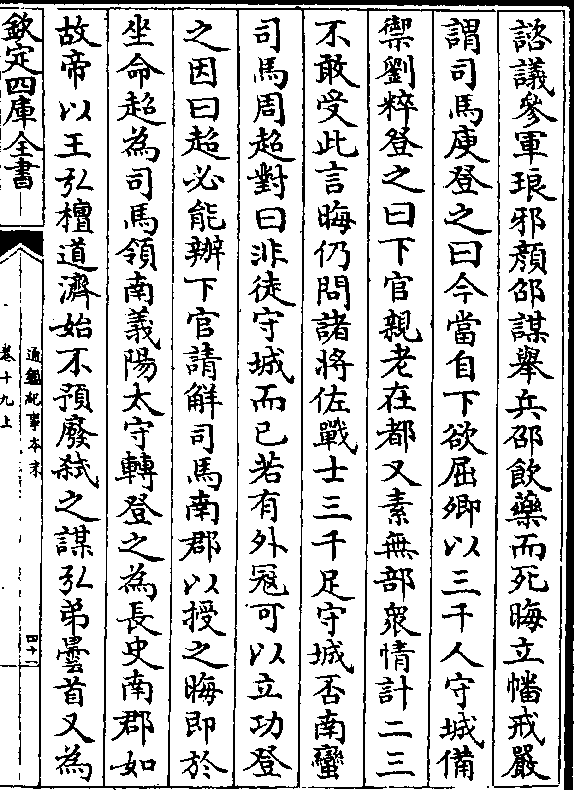 諮議參軍琅邪顏邵謀舉兵邵飲藥而死晦立幡戒嚴
謂司馬庾登之曰今當自下欲屈卿以三千人守城備
禦劉粹登之曰下官親老在都又素無部衆情計二三
不敢受此言晦仍問諸將佐戰士三千足守城否南蠻
司馬周超對曰非徒守城而已若有外冦可以立功登
之因曰超必能辦下官請解司馬南郡以授之晦即於
坐命超為司馬領南義陽太守轉登之為長史南郡如
故帝以王弘檀道濟始不預廢弑之謀弘弟曇首又為
欽定四庫全書
通鑑紀事本末
卷十九上
四十一